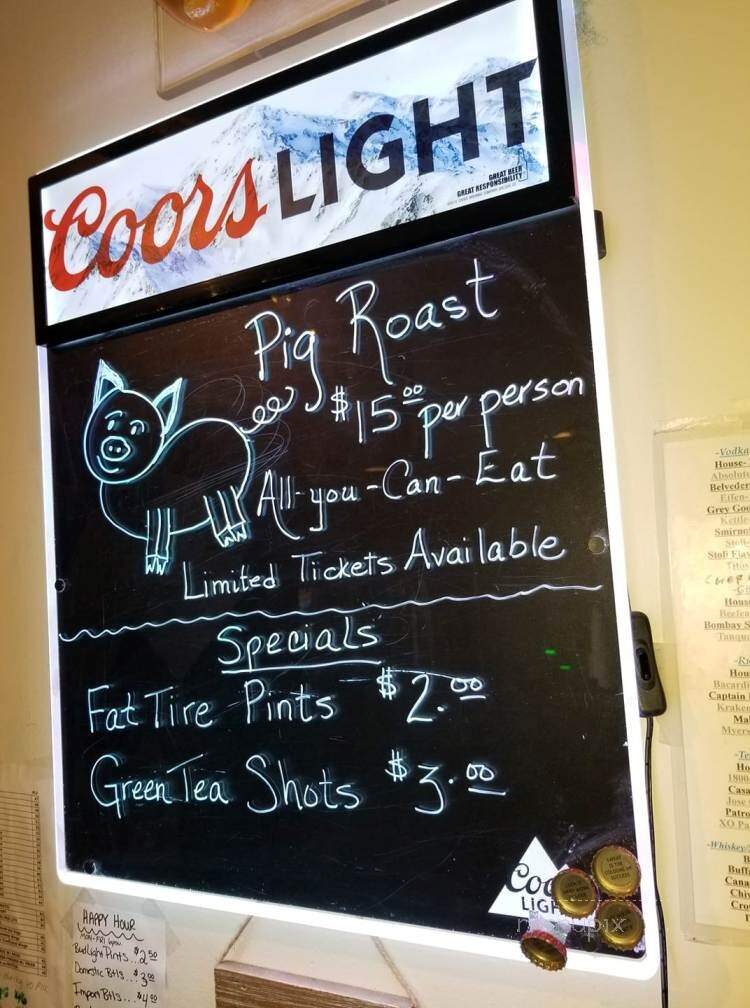 Coors LIGHT
GREAT BEER
GREAT RESPONSIBILITY
Pig Roast
$15.00 per person
All-you-Can-Eat
Limited Tickets Available
Specials
Fat Tire Pints $2.00
Green Tea Shots $3.00
Coo
LIGH
HAPPY HOUR
MON-FRI
Bud Light Pints...$2.50
Domestic Btls...$3.00
Import Btls...$4.00
-Vodka
House-
Absolute
Belveder
Grey Goo
Kettle
Smirno
Stoli Flav
Titos
House
Beefea
Bombay S
Tanque
-Ru
Hou
Bacardi
Captain
Kraken
Ma
Myers
-Te
Ho
1800
Casa
Jose
Patro
XO Pa
-Whiskey/
B
Buff
Cana
Chi
Cro